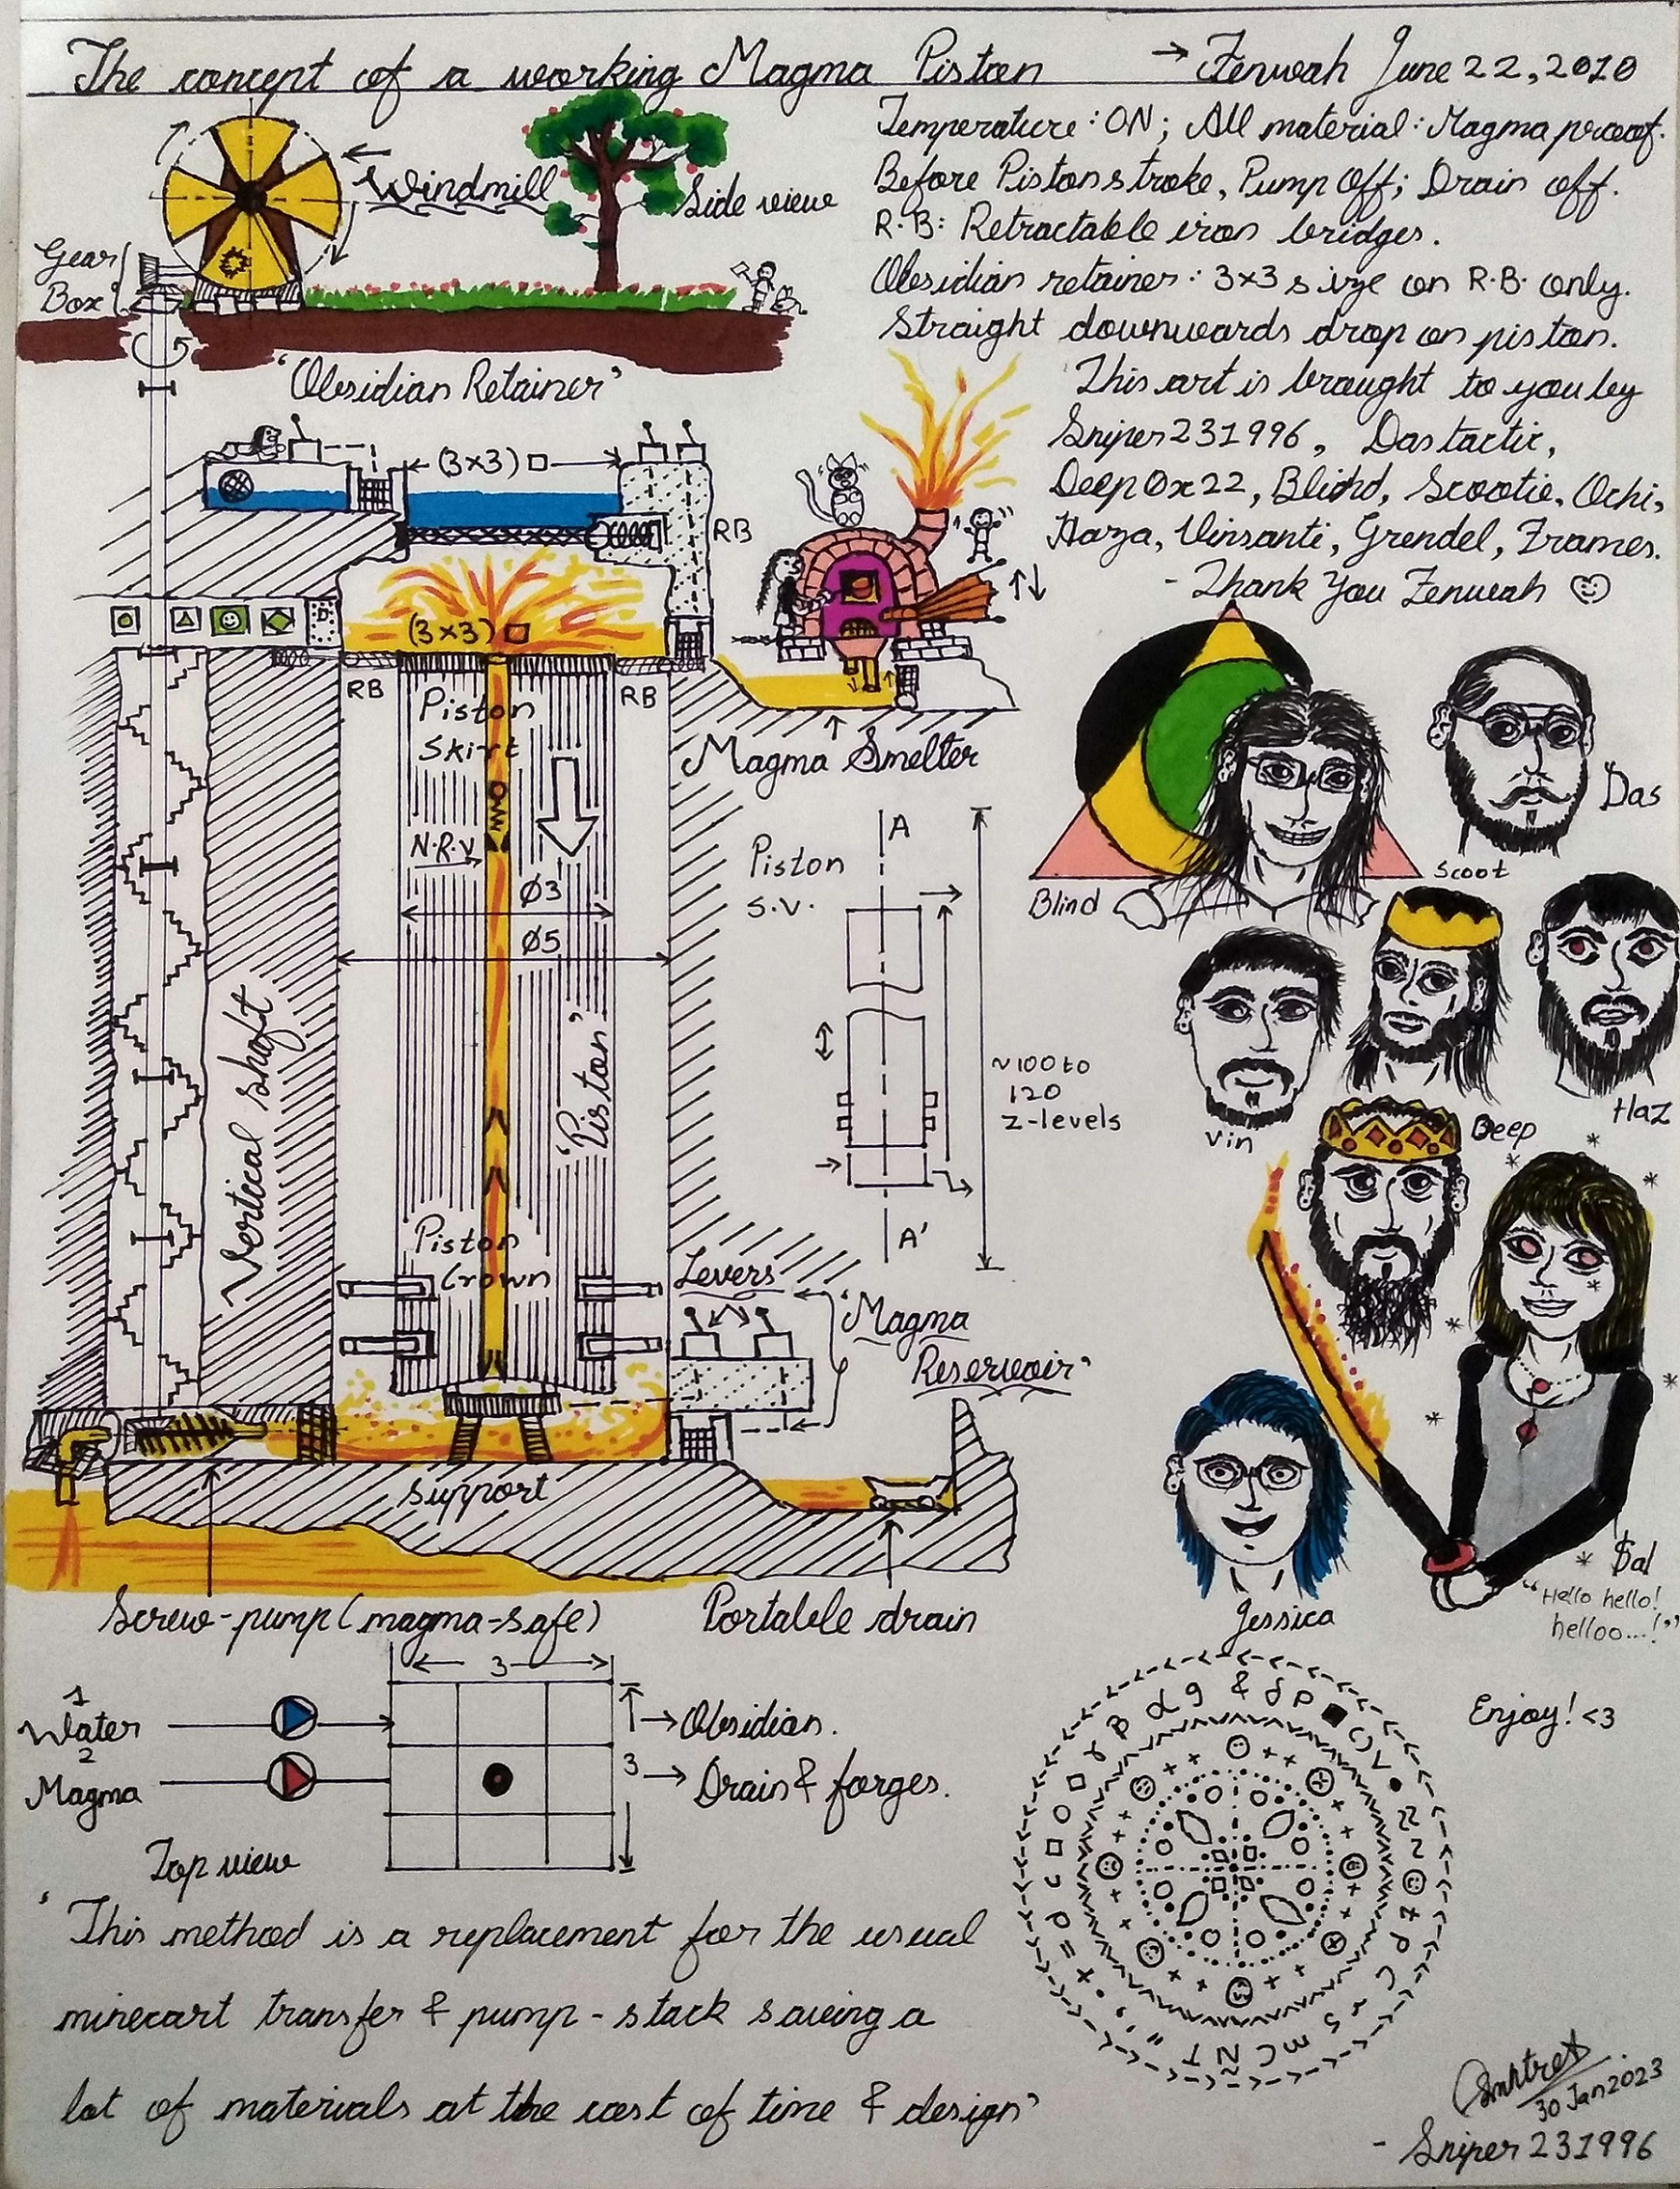 The concept of a working Magma Piston → Fenwah June 22, 2010
Temperature : ON; All material : Magma proof.
Before Piston stroke, Pump Off; Drain off.
R.B: Retractable iron bridges.
Obsidian retainer : 3×3 size on R.B. only.
Straight downwards drop on piston.
This art is brought to you by
Sniper231996, Dastactic,
DeepOx22, Blind, Scootie, Ochi,
Haza, Vinsanti, Grendel, Frames.
- Thank You Fenwah ☺
Windmill
Side view
Gear
Box
'Obsidian Retainer'
(3×3) □
RB
(3×3) □
RB
RB
Piston
Skirt
N.R.V
Ø3
Ø5
'Piston'
Piston
Crown
Vertical shaft
Magma Smelter
Piston
S.V.
A
A'
~100 to
120
z-levels
Levers
'Magma
Reservoir'
Support
Screw-pump (magma-safe)
Portable drain
Blind
Scoot
Das
Vin
Deep
Haz
Jessica
$al
"Hello hello!
helloo...!"
Enjoy! <3
1
Water
2
Magma
3
3
→Obsidian.
→ Drain & forges.
Top view
'This method is a replacement for the usual
minecart transfer & pump-stack saving a
lot of materials at the cost of time & design'
30 Jan 2023
- Sniper 231996